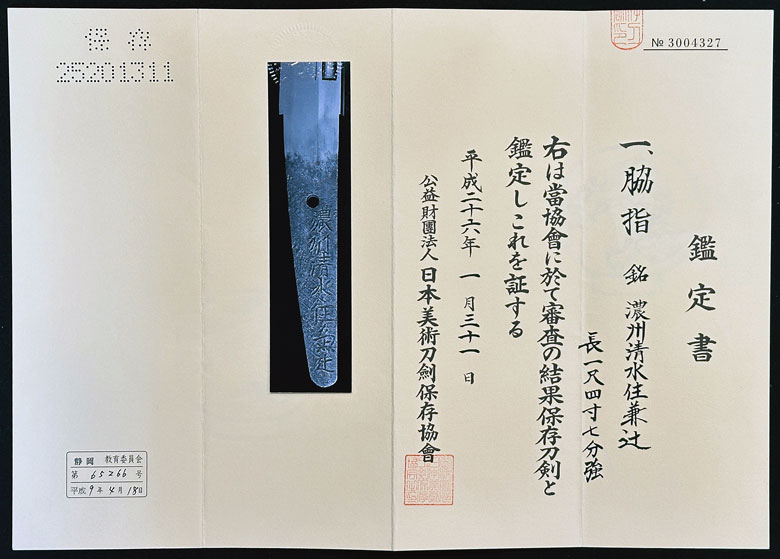 № 3004327
鑑定書
一、脇指 銘 濃州清水住兼辻
長一尺四寸七分強
右は當協會に於て審査の結果保存刀剣と
鑑定しこれを証する
平成二十六年 一月三十一日
公益財團法人 日本美術刀劍保存協會
濃州清水住兼辻
保存
25201311
静岡 教育委員会
第 65266 号
平成 9年 4月 18日